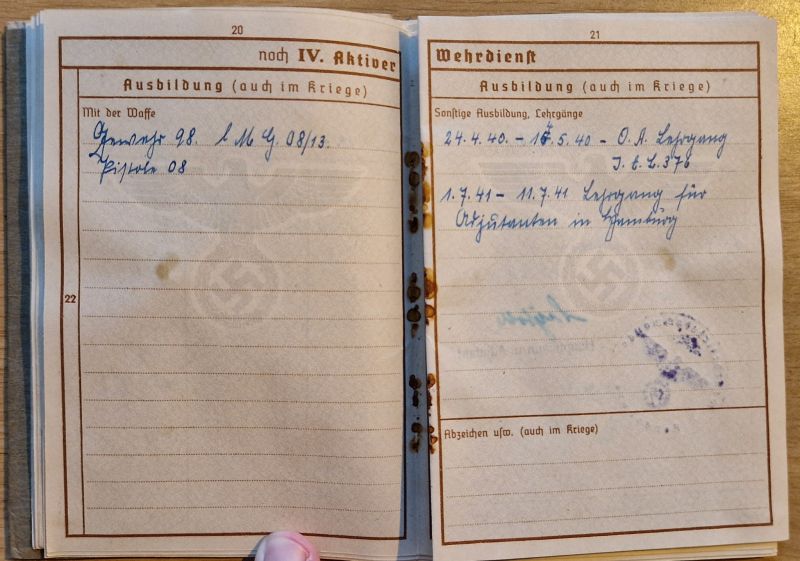 20
noch IV. Aktiver
Ausbildung (auch im Kriege)
Mit der Waffe
Gewehr 98. l M G. 08/13.
Pistole 08
22
21
Wehrdienst
Ausbildung (auch im Kriege)
Sonstige Ausbildung, Lehrgänge
24.4.40. - 5.40 - O. A. Lehrgang
J. E. B. 376
1.7.41 - 11.7.41 Lehrgang für
Adjutanten in Hamburg
Abzeichen usw. (auch im Kriege)